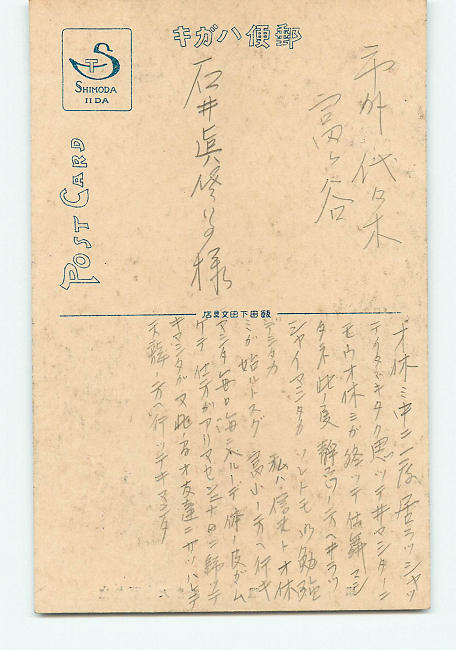 郵便ハガキ
SHIMODA
IIDA
POST CARD
市外 代々木
富ヶ谷
石井眞
様
飯田下田文具店
オ休ミ中ニ一度居ラッシャッ
テイタダキタク思ッテ井マシタ
モウオ休ミガ終ッテ仕舞マシ
タネ此ノ度 静
シャイマシタカ ソレトモ御勉強
デシタカ 私ハ信 ト オ休
ミガ始ルトスグ 富山ノ方ヘ行キ
マシタ毎日海ニ ノデ 体ノ皮ガム
ケテ 仕方ガアリマセン 十日ニ帰ッテ
キマシタガ又此 オ友達ニサソハレテ
天龍ノ方ヘ行ッテキマシタ